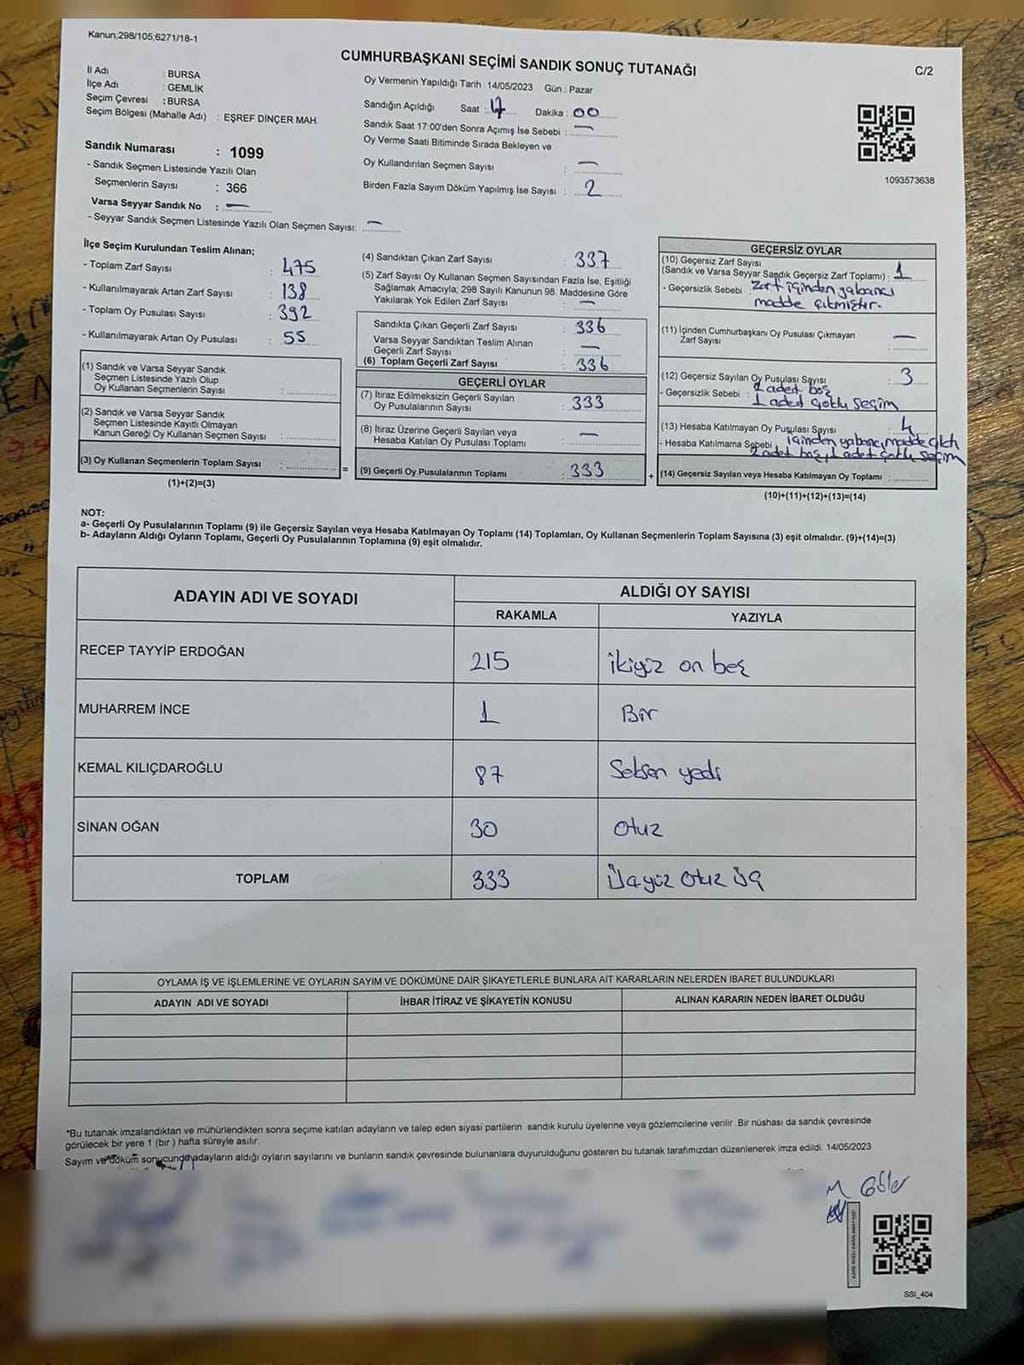 Kanun,298/105,6271/18-1
CUMHURBAŞKANI SEÇİMİ SANDIK SONUÇ TUTANAĞI
C/2
İl Adı : BURSA
İlçe Adı : GEMLİK
Seçim Çevresi : BURSA
Seçim Bölgesi (Mahalle Adı) : EŞREF DİNÇER MAH.
Sandık Numarası : 1099
- Sandık Seçmen Listesinde Yazılı Olan
Seçmenlerin Sayısı : 366
Varsa Seyyar Sandık No : —
- Seyyar Sandık Seçmen Listesinde Yazılı Olan Seçmen Sayısı: —
Oy Vermenin Yapıldığı Tarih : 14/05/2023 Gün : Pazar
Sandığın Açıldığı Saat : 17 Dakika : 00
Sandık Saat 17:00'den Sonra Açımış İse Sebebi : —
Oy Verme Saati Bitiminde Sırada Bekleyen ve
Oy Kullandırılan Seçmen Sayısı : —
Birden Fazla Sayım Döküm Yapılmış İse Sayısı : 2
1093573638
İlçe Seçim Kurulundan Teslim Alınan;
- Toplam Zarf Sayısı : 475
- Kullanılmayarak Artan Zarf Sayısı : 138
- Toplam Oy Pusulası Sayısı : 392
- Kullanılmayarak Artan Oy Pusulası : 55
(1) Sandık ve Varsa Seyyar Sandık
Seçmen Listesinde Yazılı Olup
Oy Kullanan Seçmenlerin Sayısı :
(2) Sandık ve Varsa Seyyar Sandık
Seçmen Listesinde Kayıtlı Olmayan
Kanun Gereği Oy Kullanan Seçmen Sayısı :
(3) Oy Kullanan Seçmenlerin Toplam Sayısı :
(1)+(2)=(3)
(4) Sandıktan Çıkan Zarf Sayısı : 337
(5) Zarf Sayısı Oy Kullanan Seçmen Sayısından Fazla İse, Eşitliği
Sağlamak Amacıyla; 298 Sayılı Kanunun 98. Maddesine Göre
Yakılarak Yok Edilen Zarf Sayısı : —
Sandıkta Çıkan Geçerli Zarf Sayısı : 336
Varsa Seyyar Sandıktan Teslim Alınan
Geçerli Zarf Sayısı : —
(6) Toplam Geçerli Zarf Sayısı : 336
GEÇERLİ OYLAR
(7) İtiraz Edilmeksizin Geçerli Sayılan
Oy Pusulalarının Sayısı : 333
(8) İtiraz Üzerine Geçerli Sayılan veya
Hesaba Katılan Oy Pusulası Toplamı : —
= (9) Geçerli Oy Pusulalarının Toplamı : 333 +
GEÇERSİZ OYLAR
(10) Geçersiz Zarf Sayısı
(Sandık ve Varsa Seyyar Sandık Geçersiz Zarf Toplamı) : 1
- Geçersizlik Sebebi : Zarf içinden yabancı
madde çıkmıştır.
(11) İçinden Cumhurbaşkanı Oy Pusulası Çıkmayan
Zarf Sayısı : —
(12) Geçersiz Sayılan Oy Pusulası Sayısı : 3
- Geçersizlik Sebebi : 2 aded boş
1 aded çoklu seçim
(13) Hesaba Katılmayan Oy Pusulası Sayısı : 4
- Hesaba Katılmama Sebebi : içinden yabancı madde çıktı
2 adet boş, 1 adet çoklu seçim
(14) Geçersiz Sayılan veya Hesaba Katılmayan Oy Toplamı :
(10)+(11)+(12)+(13)=(14)
NOT:
a- Geçerli Oy Pusulalarının Toplamı (9) ile Geçersiz Sayılan veya Hesaba Katılmayan Oy Toplamı (14) Toplamları, Oy Kullanan Seçmenlerin Toplam Sayısına (3) eşit olmalıdır. (9)+(14)=(3)
b- Adayların Aldığı Oyların Toplamı, Geçerli Oy Pusulalarının Toplamına (9) eşit olmalıdır.
ADAYIN ADI VE SOYADI
ALDIĞI OY SAYISI
RAKAMLA YAZIYLA
RECEP TAYYİP ERDOĞAN 215 ikiyüz on beş
MUHARREM İNCE 1 Bir
KEMAL KILIÇDAROĞLU 87 Seksen yedi
SİNAN OĞAN 30 Otuz
TOPLAM 333 Üçyüz Otuz üç
OYLAMA İŞ VE İŞLEMLERİNE VE OYLARIN SAYIM VE DÖKÜMÜNE DAİR ŞİKAYETLERLE BUNLARA AİT KARARLARIN NELERDEN İBARET BULUNDUKLARI
ADAYIN ADI VE SOYADI İHBAR İTİRAZ VE ŞİKAYETİN KONUSU ALINAN KARARIN NEDEN İBARET OLDUĞU
*Bu tutanak imzalandıktan ve mühürlendikten sonra seçime katılan adayların ve talep eden siyasi partilerin sandık kurulu üyelerine veya gözlemcilerine verilir. Bir nüshası da sandık çevresinde
görülecek bir yere 1 (bir ) hafta süreyle asılır.
Sayım ve döküm sonucunda adayların aldığı oyların sayılarını ve bunların sandık çevresinde bulunanlara duyurulduğunu gösteren bu tutanak tarafımızdan düzenlenerek imza edildi. 14/05/2023
SSI_404